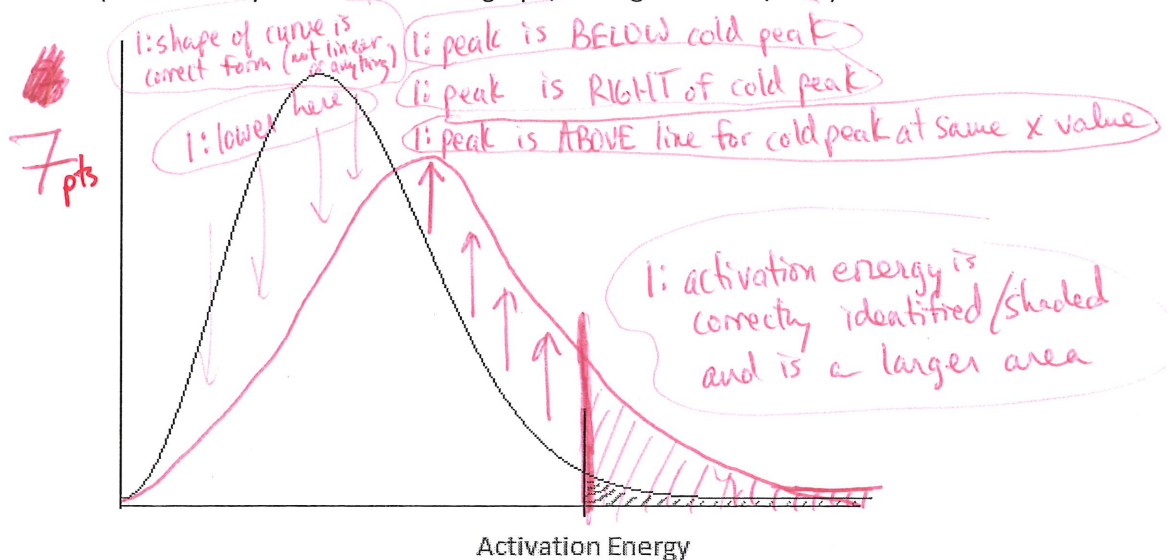 1: shape of curve is
correct form (not linear
or anything)
1: peak is BELOW cold peak
1: peak is RIGHT of cold peak
1: lower here
1: peak is ABOVE line for cold peak at same x value
7 pts
1: activation energy is
correctly identified/shaded
and is a larger area
Activation Energy